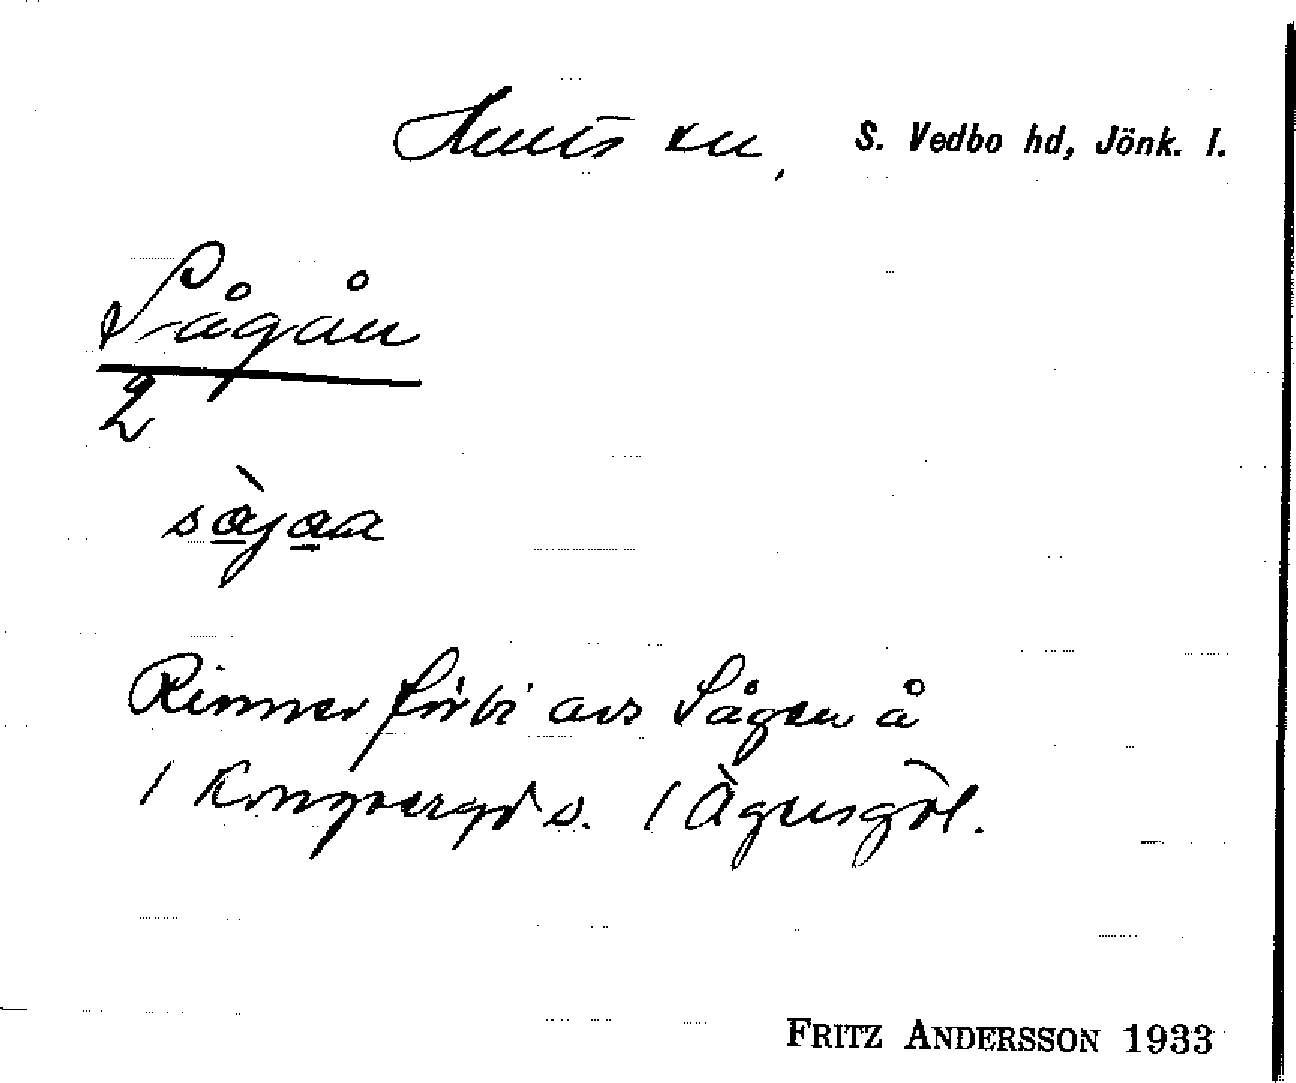 Hults sn, S. Vedbo hd, Jönk. l.
Sågån
2
såg̀åa
Rinner förbi avs Sågen å
/ Kongsberget s. / Ågusgöl.
FRITZ ANDERSSON 1933